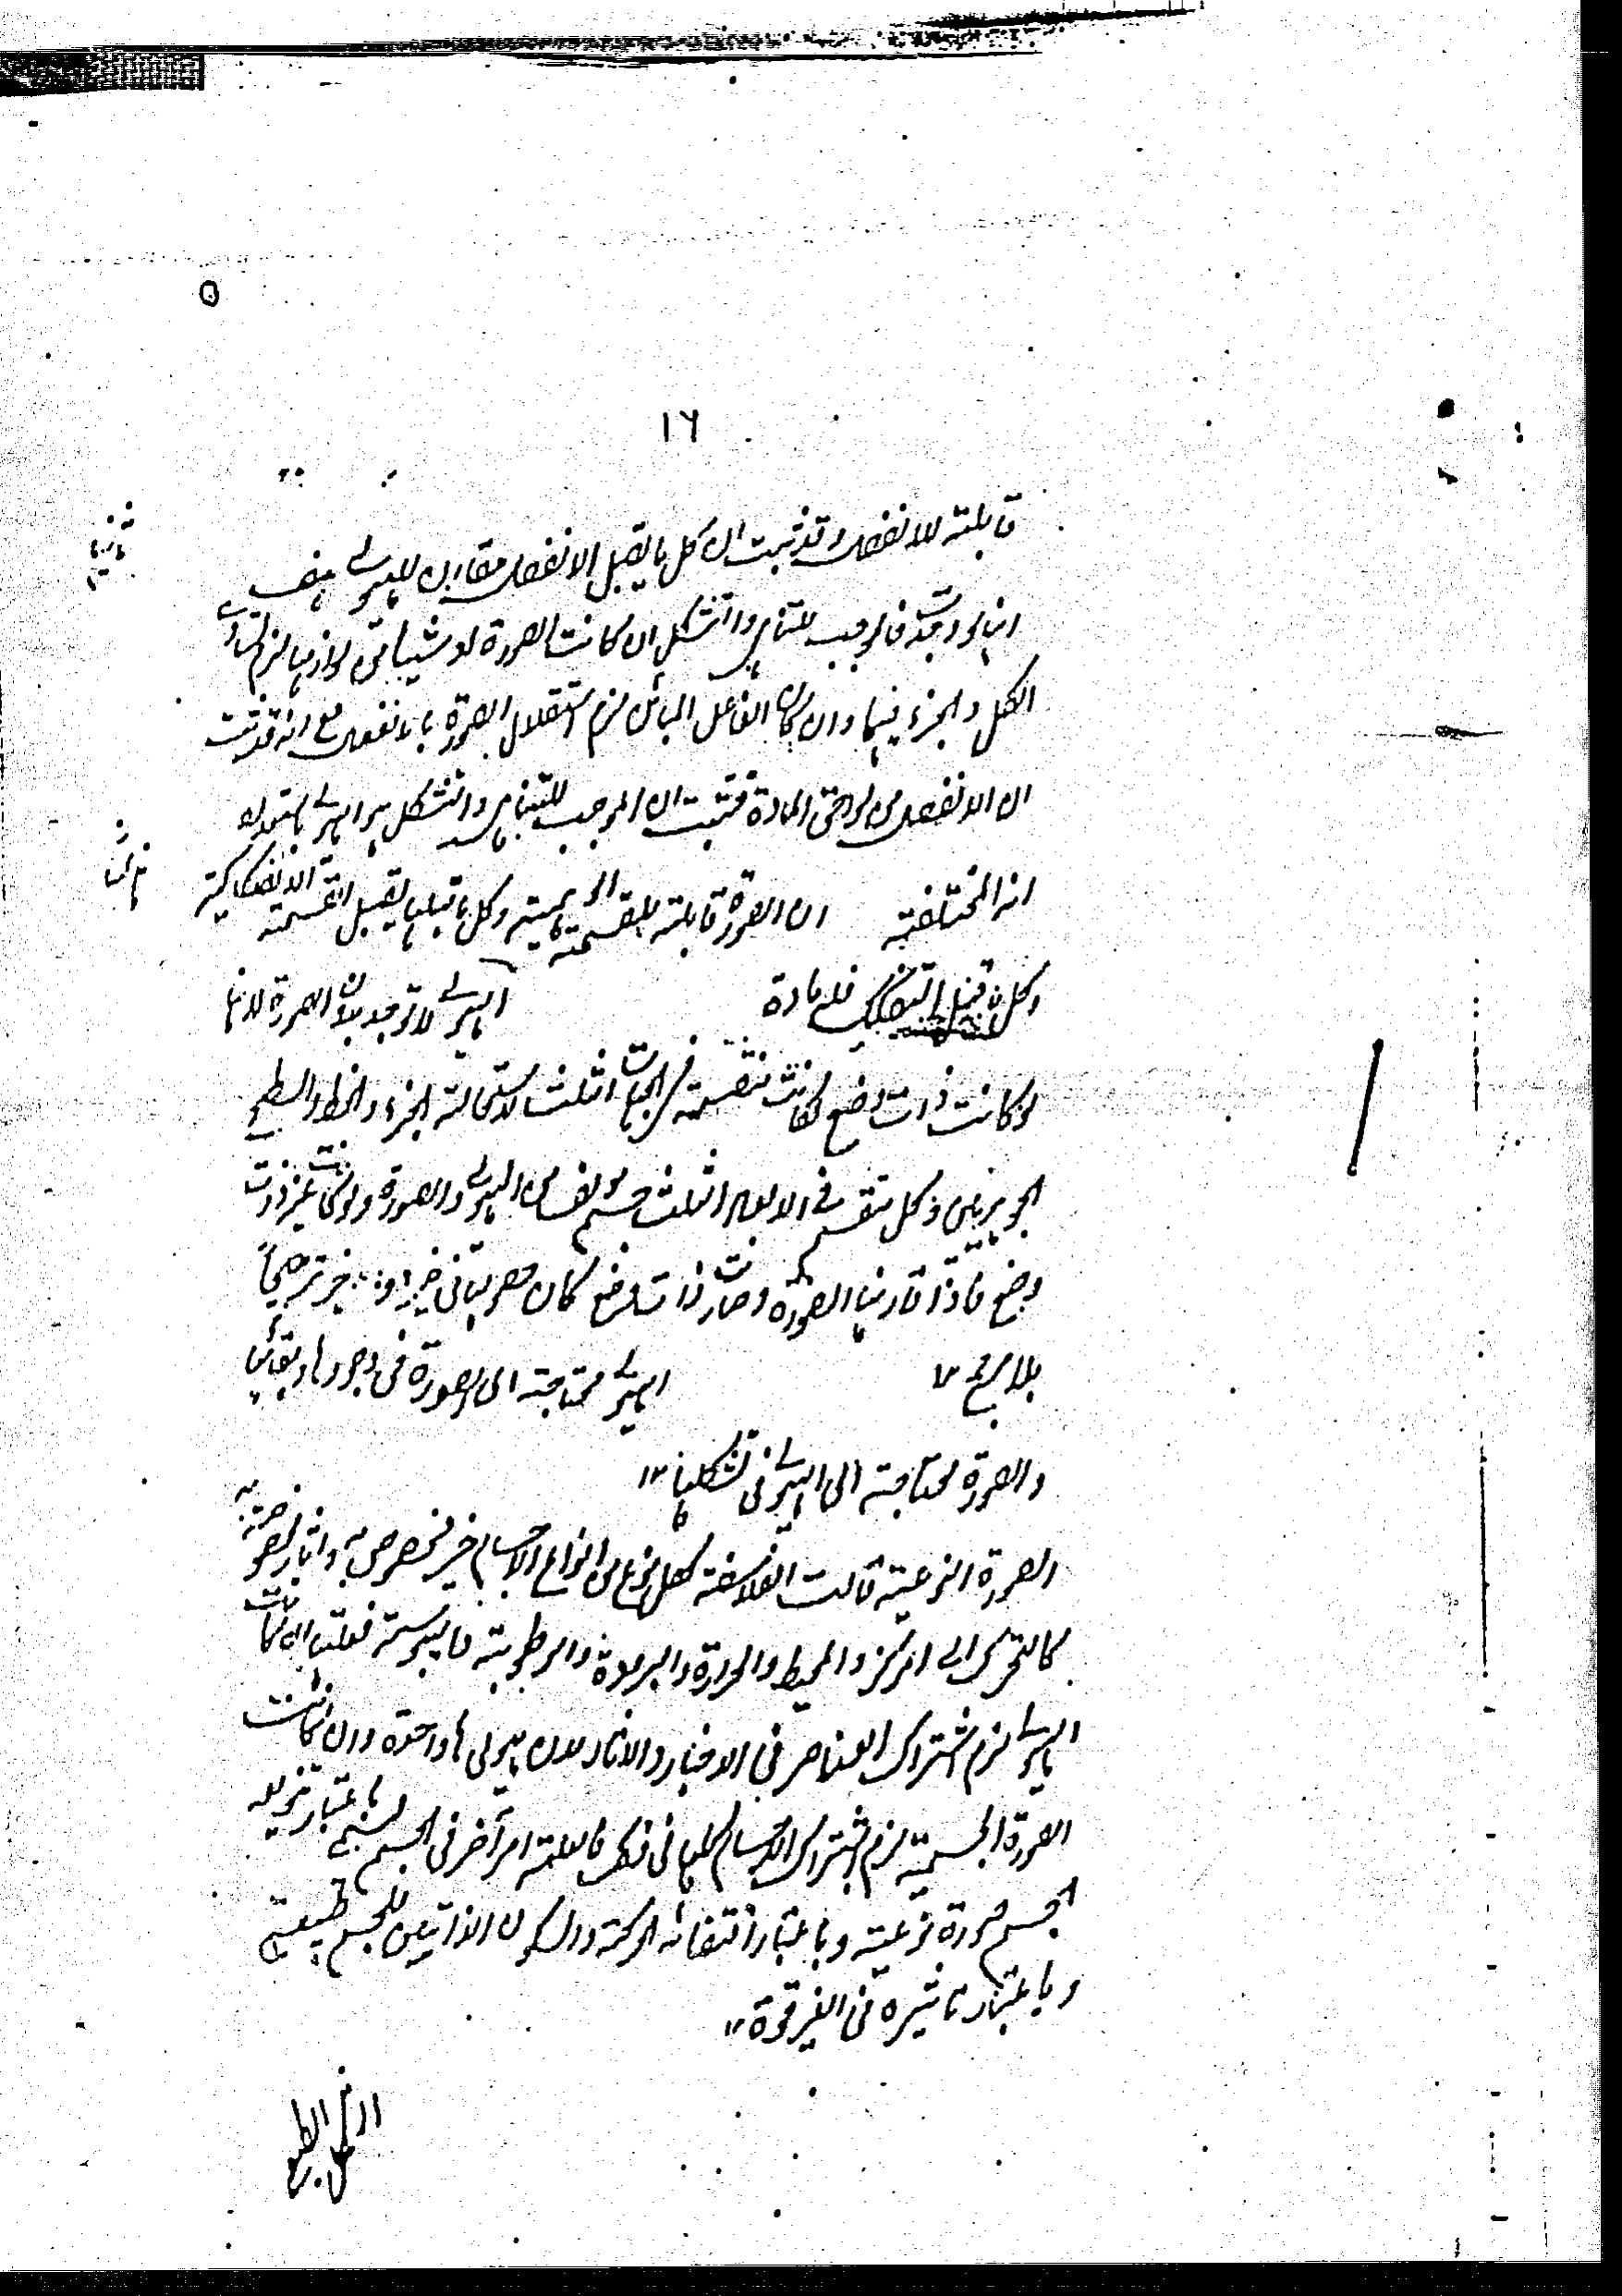 ١٦
قابلة للانفصال وقد ثبت ان كل ما يقبل الانفصال مقارن للهيولے هف
ثانيها
انها لو وجدت فالموجب للتناهي والتشكل ان كانت الصورة او شيئا من لوازمها لزم تساوے
الكل والجزء فيهما وان كان الفاعل المباين لزم استقلال الصورة بالانفصال مع انه قد ثبت
ان الانفصال من لواحق المادة فثبت ان الموجب للتناهي والتشكل هو الهيولے
ثالثها
المختلفة ان الصورة قابلة للقسمة الوهمية وكل ما قبلها يقبل القسمة الانفكاكية
وكل ما قبل التفكيك فله مادة الهيولے لا توجد بدون الصورة لانها
لو كانت ذات وضع لكانت منقسمة في الجهات الثلث لاستحالة الجزء والخط والسطح
الجوهريين وكل منقسم في الابعاد الثلث جسم مؤلف من الهيولے والصورة ولو كانت غير ذات
وضع فاذا قارنها الصورة وصارت ذات وضع كان حصولها في حيز دون حيز ترجيحاً
بلا مرجح ١٢ الهيولے محتاجة الى الصورة في وجودها وبقائها
والصورة محتاجة الى الهيولے في تشكلها ١٢
الصورة النوعية قالت الفلاسفة لكل نوع من انواع الاجسام حيز مخصوص به واثار مخصوصة به
كالتحرك الى المركز والمحيط والحرارة والبرودة والرطوبة واليبوسة فعلتها ان كانت
الهيولے لزم اشتراك العناصر في الاحياز والاثار لان هيولى ها واحدة وان كانت
الصورة الجسمية لزم اشتراك الاجسام كلها في ذلك فالعلة امر آخر في الجسم يسمى باعتبار تنويعه
الجسم صورة نوعية وباعتبار اقتضائه الحركة والسكون الذاتيين للجسم طبيعة
وباعتبار تاثيره في الغير قوة ١٢